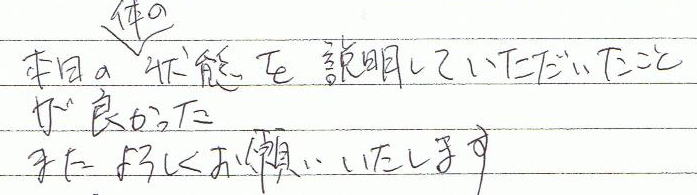 体の
本日の状態を説明していただいたこと
が良かった
またよろしくお願いいたします